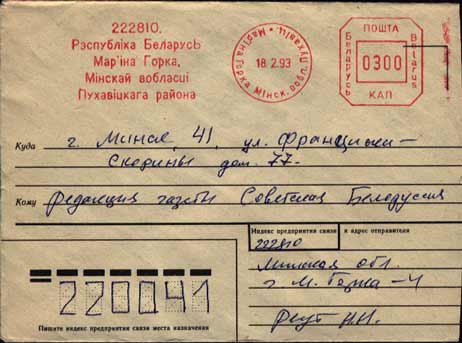 222810.
Рэспубліка Беларусь
Мар'іна Горка,
Мінскай вобласці
Пухавіцкага раёна
Мар'іна Горка Мінск. вобл. Пухавіц.
18.2.93
ПОШТА
Беларусь
0300
Belarus
КАП
Куда г. Минск, 41, ул. Франциска-
Скорины дом. 77.
Кому Редакция газеты Советская Белоруссия
Индекс предприятия связи и адрес отправителя
222810
Минская обл.
г. М. Горка-4
220041
Пишите индекс предприятия связи места назначения